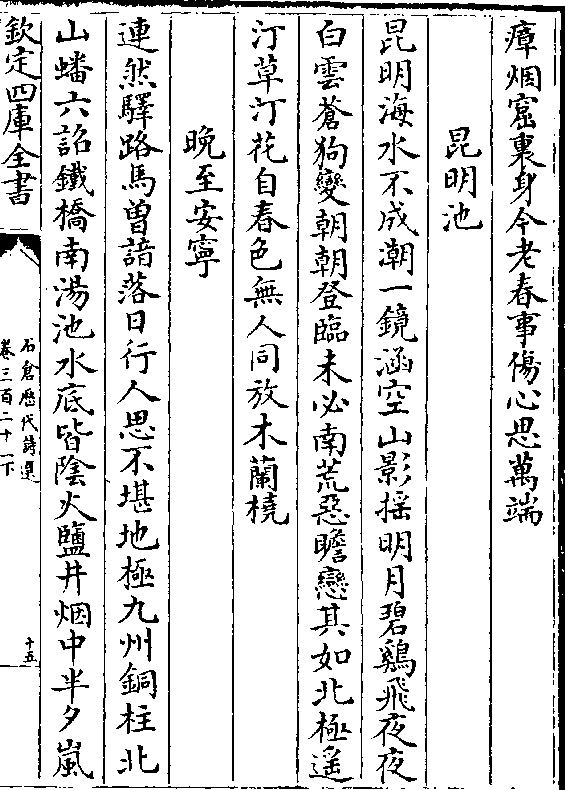 瘴烟窟裏身今老春事傷心思萬端
昆明池
昆明海水不成潮一鏡涵空山影揺明月碧鷄飛夜夜
白雲蒼狗變朝朝登臨未必南荒惡瞻戀其如北極遥
汀草汀花自春色無人同放木蘭橈
晚至安寧
連然驛路馬曽諳落日行人思不堪地極九州銅柱北
山蟠六詔鐵橋南湯池水底皆陰火鹽井烟中半夕嵐
欽定四庫全書
石倉歴代詩選
卷三百二十一下
十五